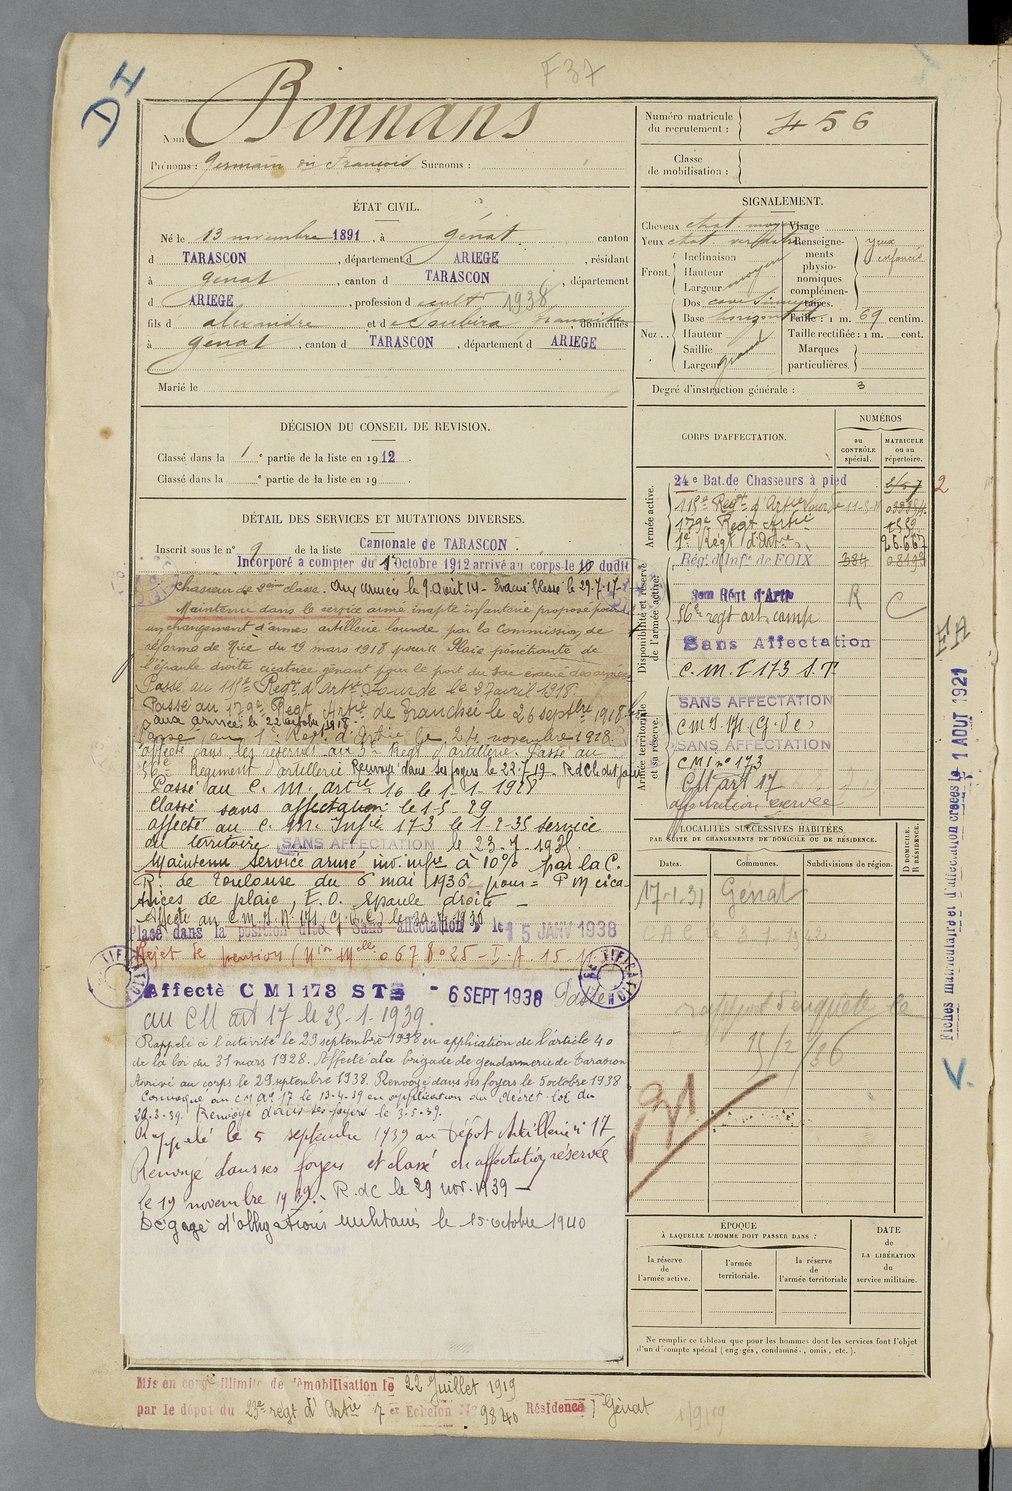 F37
Nom : Bonnans
Prénoms : Germain dit François Surnoms :
Numéro matricule
du recrutement : 456
Classe
de mobilisation :
ÉTAT CIVIL.
Né le 13 novembre 1891, à Génat, canton
d TARASCON, département d ARIEGE, résidant
à Génat, canton d TARASCON, département
d ARIEGE, profession de cult 1938
fils d Alexandre et d Soubira françoise, domiciliés
à Génat, canton d TARASCON, département d ARIEGE
Marié le
SIGNALEMENT.
Cheveux chat. moy Visage
Yeux chat. verdatre
Renseignements physionomiques complémentaires. yeux enfoncés
Front. Inclinaison
Hauteur moyen
Largeur
Nez . . Dos cave
Base horizontal
Hauteur
Saillie
Largeur grand
Taille : 1 m. 69 centim.
Taille rectifiée : 1 m. cent.
Marques
particulières.
Degré d'instruction générale : 3
DÉCISION DU CONSEIL DE REVISION.
Classé dans la 1e partie de la liste en 1912.
Classé dans la e partie de la liste en 19
DÉTAIL DES SERVICES ET MUTATIONS DIVERSES.
Inscrit sous le n° 9 de la liste Cantonale de TARASCON.
Incorporé a compter du 1er Octobre 1912 arrivé au corps le 10 dudit
Chasseur de 2ème classe. Aux Armées le 9 Août 14 - Evacué blessé le 29-7-17-
Maintenu dans le service armé inapte infanterie proposé pour
un changement d'armes artillerie lourde par la Commission de
réforme de Nice du 19 mars 1918 pour Plaie pénétrante de
l'épaule droite cicatrice gênant pour le port du sac
Passé au 115e Régt d'Artie Lourde le 27 avril 1918.
Passé au 179e Regt Artie de Tranchée le 26 septbre 1918
aux armées le 22 octobre 1918
Passé au 1er Regt. d'Artie le 24 novembre 1918.
affecté dans les réserves au 3e Regt d'artillerie. Passé au
56e Régiment d'artillerie Renvoyé dans ses foyers le 22-7-19 - RdC le dit jour
Passé au C. M. artie 16 le 1-1-1928
Classé sans affectation le 1-5-29
affecté au C. M. Infie 173 le 1-2-35 service
du territoire SANS AFFECTATION le 23-7-1935.
Maintenu service armé inv. infre à 10% par la C.
R. de Toulouse du 6 mai 1936 pour = P M cica
trices de plaie, E.O. Epaule droite -
Affecté au C.M.I. 173 (G.V.C)
Placé dans la position dite " Sans affectation " le 15 JANV 1938
Rejet de pension (Mion Mlle 067 8025 - I.A. 15
Affecté C M I 173 ST - 6 SEPT 1938 Passé
au CM art 17 le 25-1-1939.
Rappelé à l'activité le 29 septembre 1938 en application de l'article 40
de la loi du 31 mars 1928. Affecté à la brigade de gendarmerie de Tarascon
Arrivé au corps le 29 septembre 1938. Renvoyé dans ses foyers le 5 octobre 1938
Convoqué au CM Art 17 le 13-4-39 en application du décret-loi du
20-3-39. Renvoyé dans ses foyers le 3-5-39.
Rappelé le 5 septembre 1939 au Dépôt Artillerie n° 17
Renvoyé dans ses foyers et classé en affectation réservée
le 19 novembre 1939. R.d.C le 29 nov. 1939 -
Dégagé d'obligations militaires le 15 octobre 1940
CORPS D'AFFECTATION.
NUMÉROS
au CONTRÔLE spécial.
MATRICULE ou au répertoire.
Armée active.
24e Bat. de Chasseurs à pied
115e Regt d'Artie Lourde
179e Regt Artie
1er Regt d'Artie
Disponibilité et réserve de l'armée active.
Rég. d'Infie de FOIX
3em Régt d'Artie R C
56e regt art. camp
Sans Affectation
C. M. I 173 S.T
Armée territoriale et sa réserve.
SANS AFFECTATION
C M I. 173 (G.V.C)
SANS AFFECTATION
CMI n° 173
CM art 17
affectation réservée
LOCALITÉS SUCCESSIVES HABITÉES
PAR SUITE DE CHANGEMENTS DE DOMICILE OU DE RÉSIDENCE.
D DOMICILE.
R RÉSIDENCE.
Dates. Communes. Subdivisions de région.
17-1-31 Génat
CAC le 3-1-1942
rapport d'enquête le
15/2/36
31
ÉPOQUE
À LAQUELLE L'HOMME DOIT PASSER DANS :
la réserve
de
l'armée active.
l'armée
territoriale.
la réserve
de
l'armée territoriale
DATE
de
LA LIBÉRATION
du
service militaire.
Ne remplir ce tableau que pour les hommes dont les services font l'objet
d'un décompte spécial (engagés, condamnés, omis, etc.).
Fiches matriculaire et d'affectation créées le 1 AOUT 1921
Mis en congé illimité de démobilisation le 22 Juillet 1919
par le dépot du 23e regt d'Artie 7e Echelon N° 9840 Résidence Génat